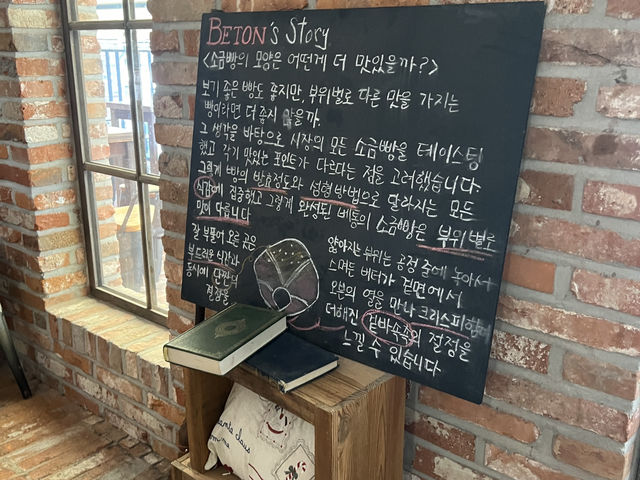 BETON's Story
<소금빵의 모양은 어떤게 더 맛있을까?>
보기 좋은 빵도 좋지만, 부위별로 다른 맛을 가지는
빵이라면 더 좋지 않을까.
그 생각을 바탕으로 시장의 모든 소금빵을 테이스팅
했고 각기 맛있는 포인트가 다르다는 점을 고려했습니다.
그렇게 빵의 발효정도와 성형방법으로 달라지는 모든
식감에 집중했고 그렇게 완성된 베통의 소금빵은 부위별로
맛이 다릅니다
잘 부풀어 오른 곳은
부드러운 식감과
동시에 단짠의
절정을
얇아지는 부위는 공정 중에 녹아서
스며든 버터가 겉면에서
오븐의 열을 만나 크리스피함이
더해진 겉바속촉의 절정을
느낄 수 있습니다
santa claus